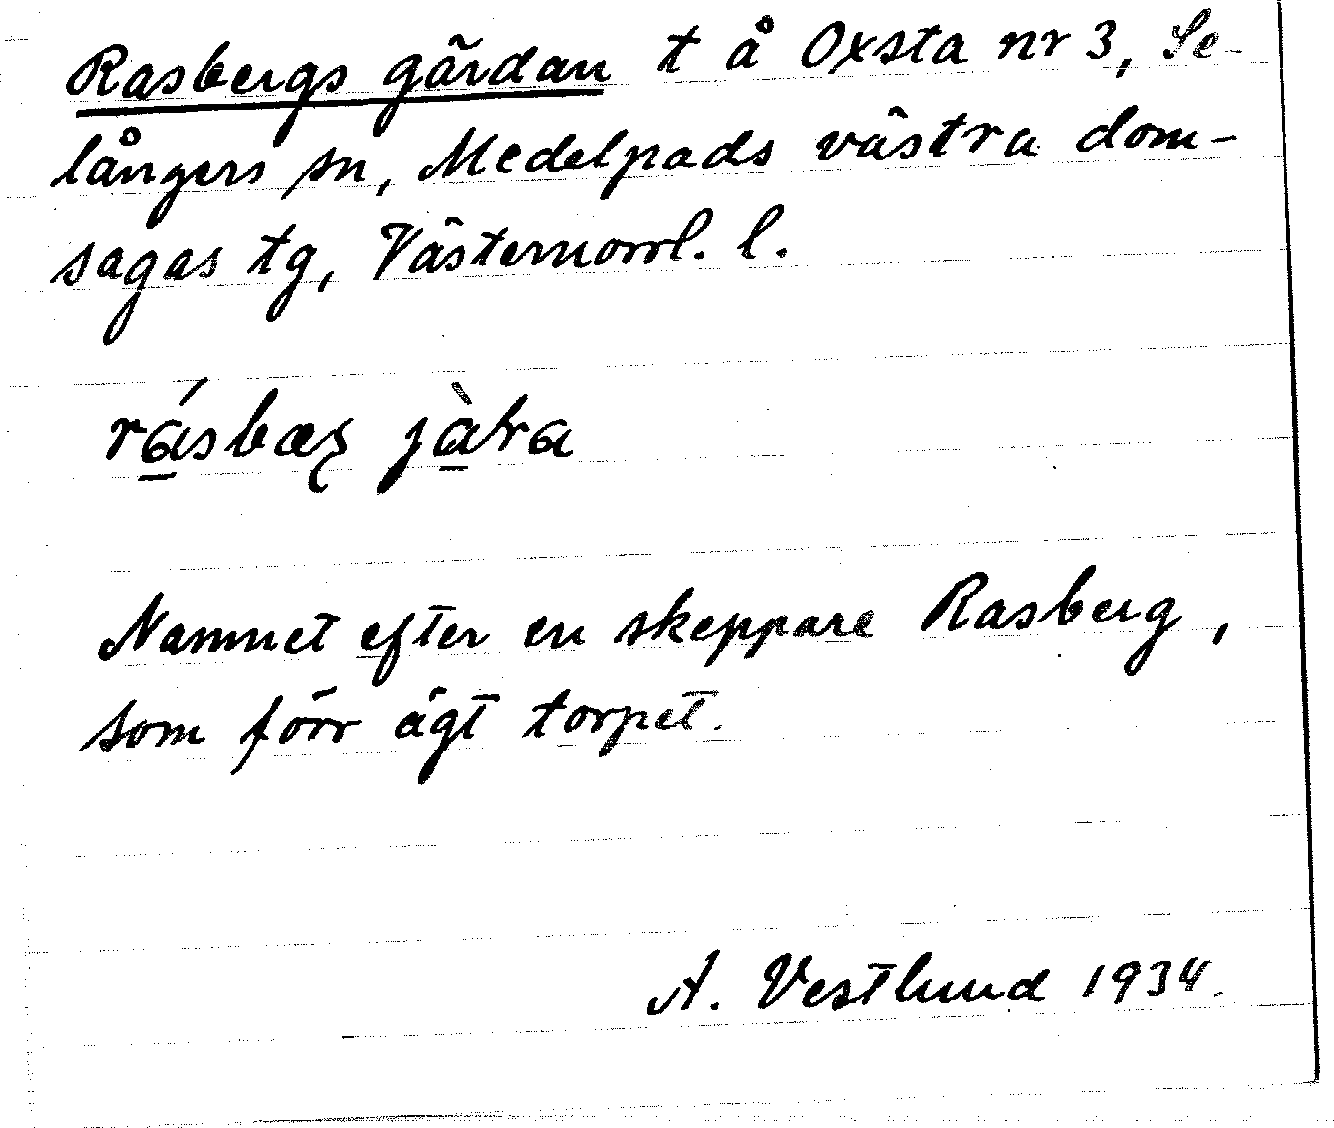 Rasbergs gärdan t å Oxsta nr 3, Se-
långers sn, Medelpads västra dom-
sagas tg, Västernorrl. l.
Namnet efter en skeppare Rasberg,
som förr ägt torpet.
A. Vestlund 1934.